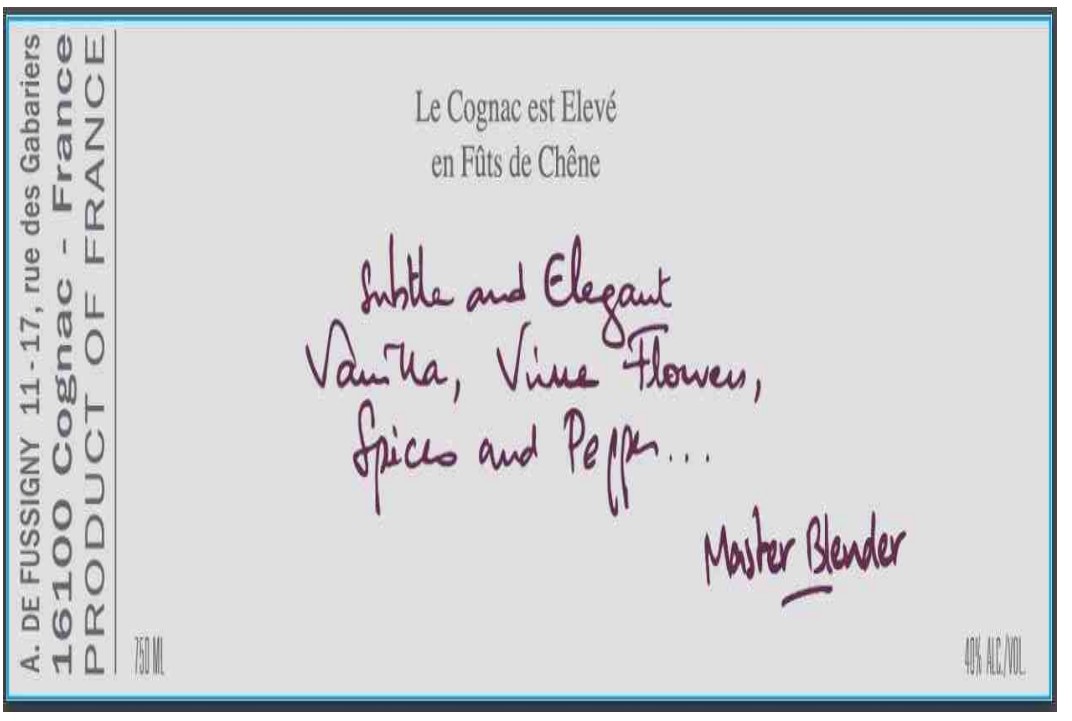 A. DE FUSSIGNY 11-17, rue des Gabariers
16100 Cognac - France
PRODUCT OF FRANCE
Le Cognac est Elevé
en Fûts de Chêne
Subtle and Elegant
Vanilla, Vine Flowers,
Spices and Pepper...
Master Blender
750 ML
40% ALC./VOL.